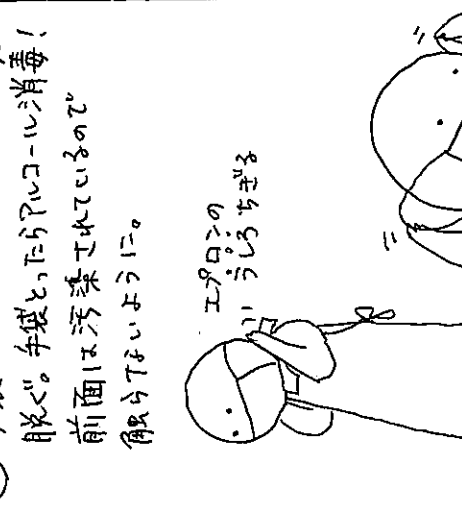 脱ぐ。手袋とったらアルコール消毒！
前面は汚染されているので
触らないように。
エプロンの
うしろちぎる